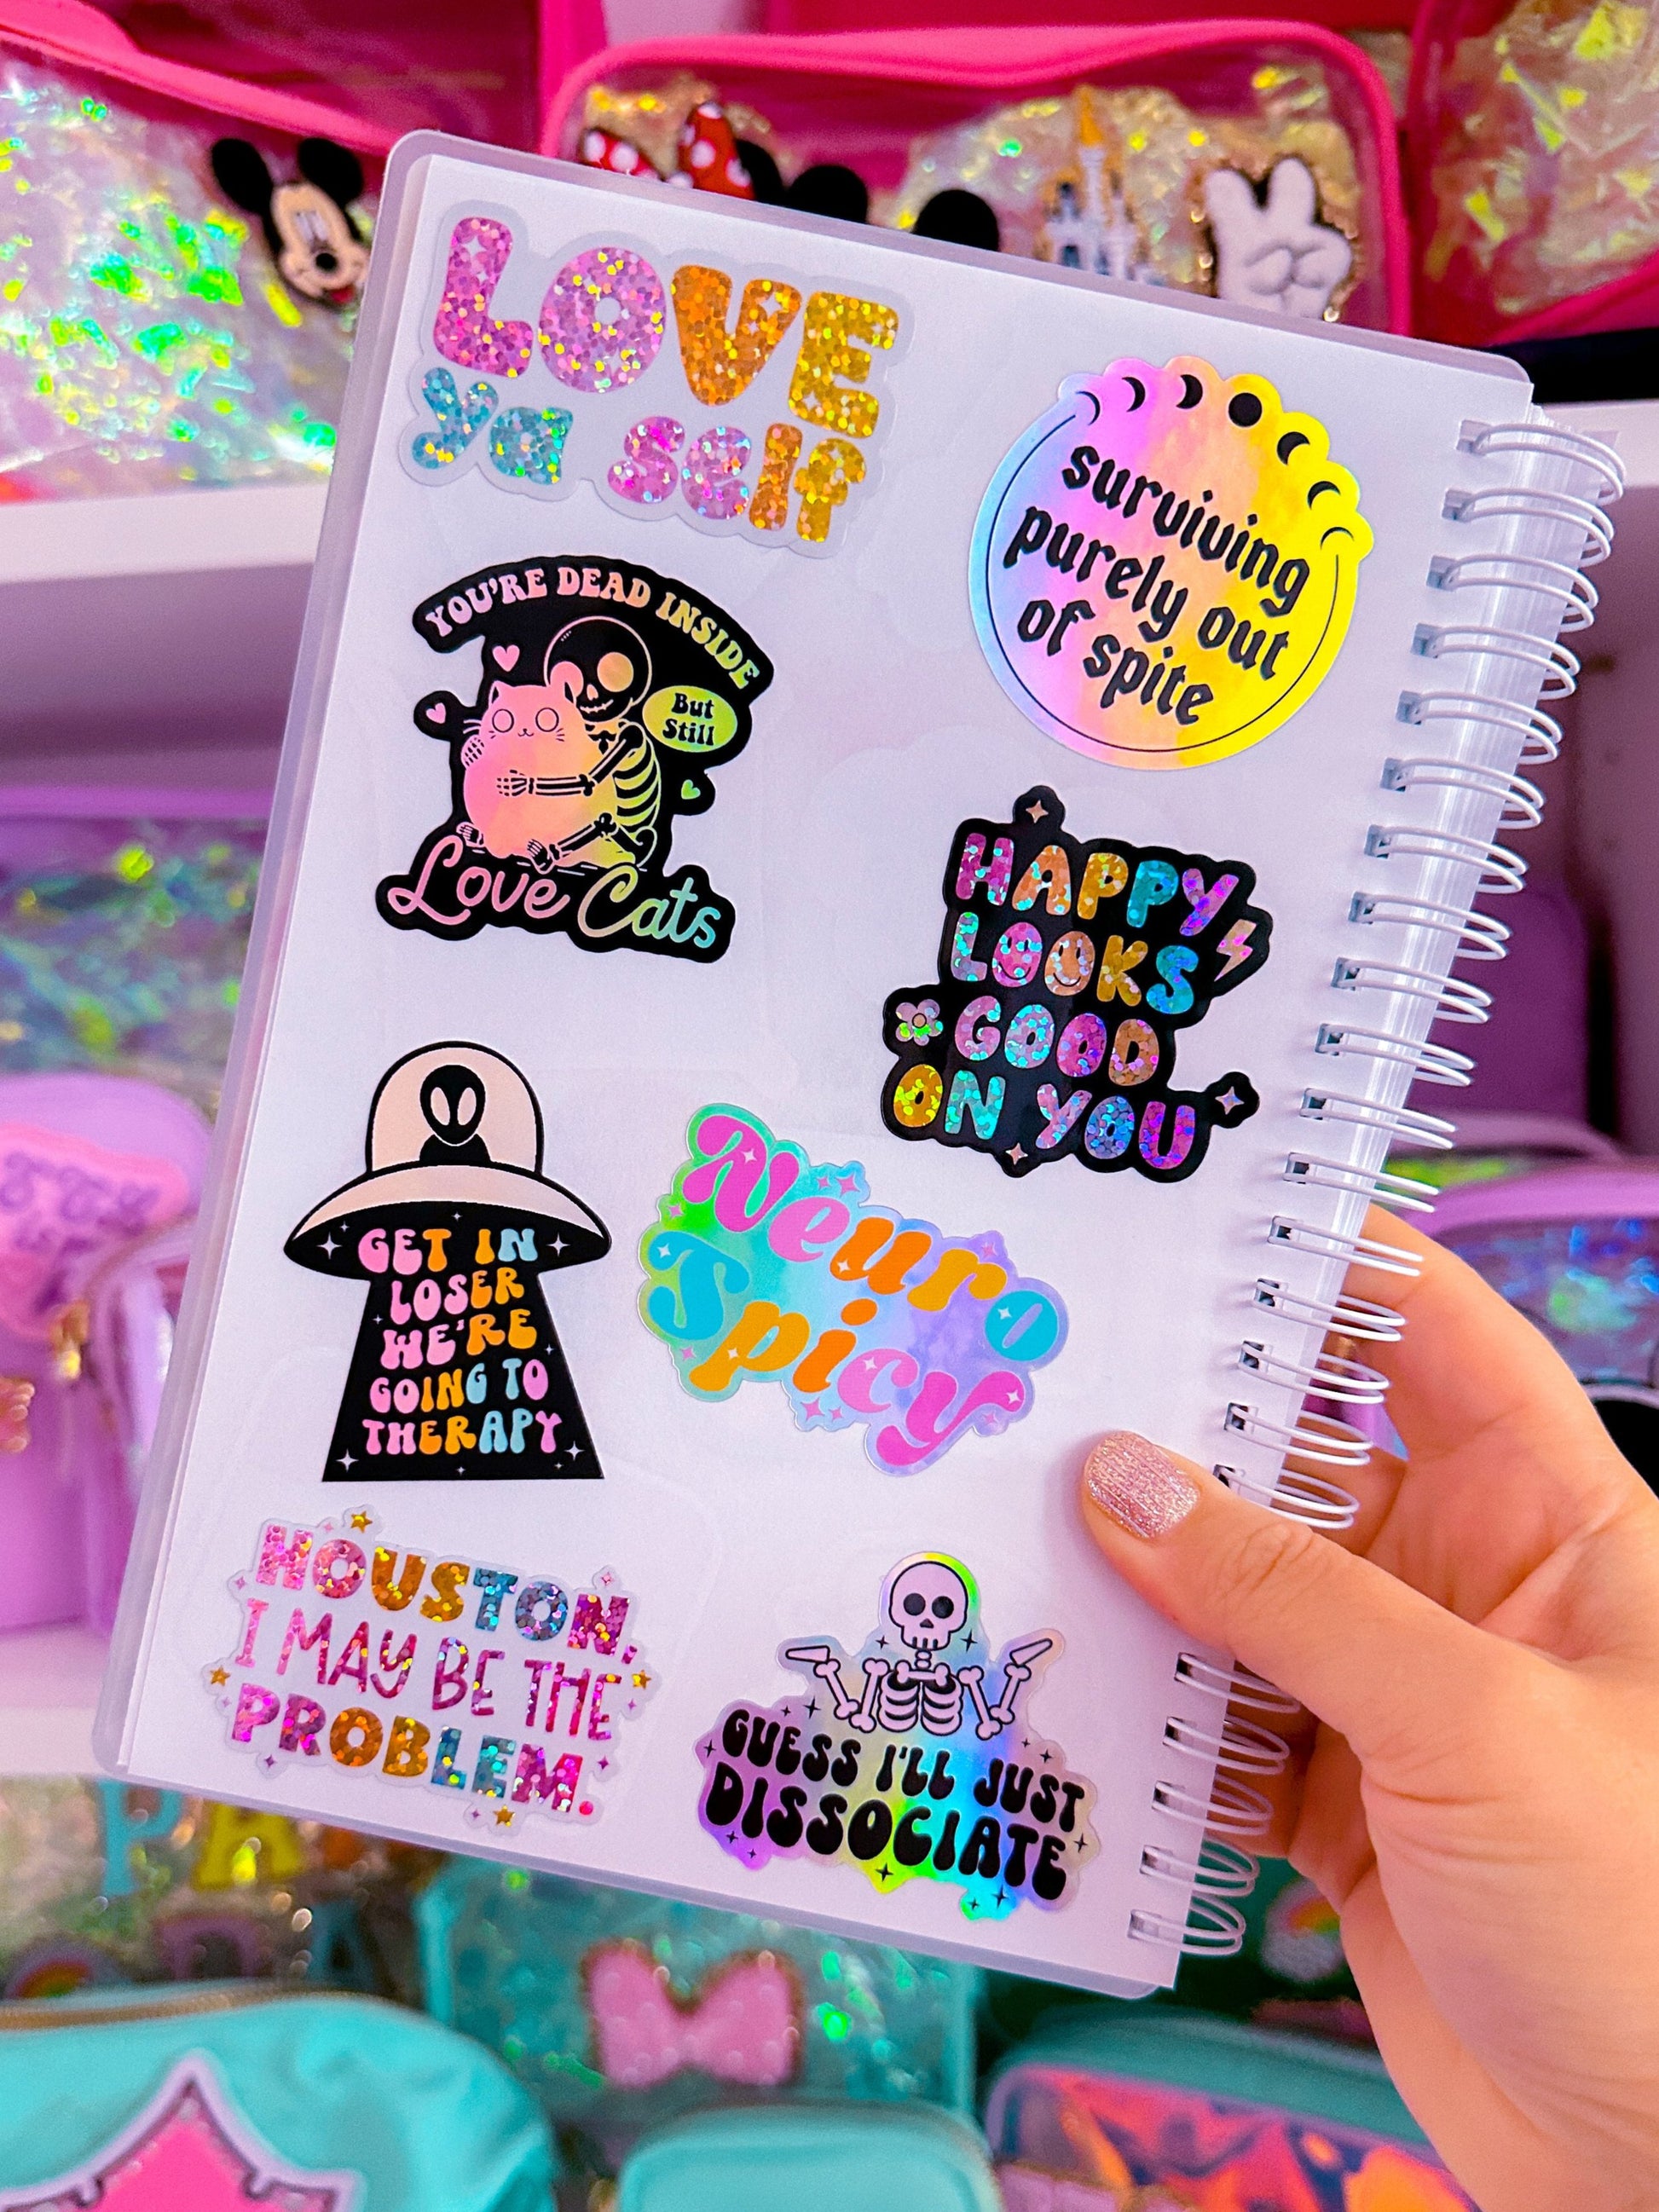 LOVE
ya self
surviving
purely out
of spite
YOU'RE DEAD INSIDE
But
Still
Love Cats
HAPPY
LOOKS
GOOD
ON YOU
GET IN
LOSER
WE'RE
GOING TO
THERAPY
Neuro
Spicy
HOUSTON,
I MAY BE THE
PROBLEM.
GUESS I'LL JUST
DISSOCIATE